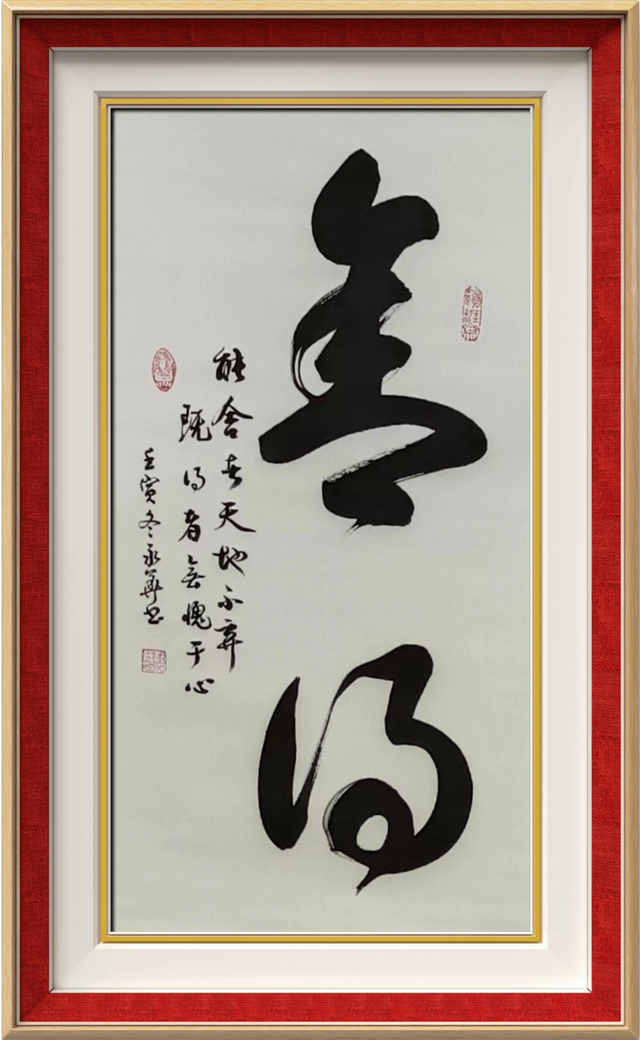 舍得
能舍者天地不弃
既得者無愧于心
壬寅冬永華书